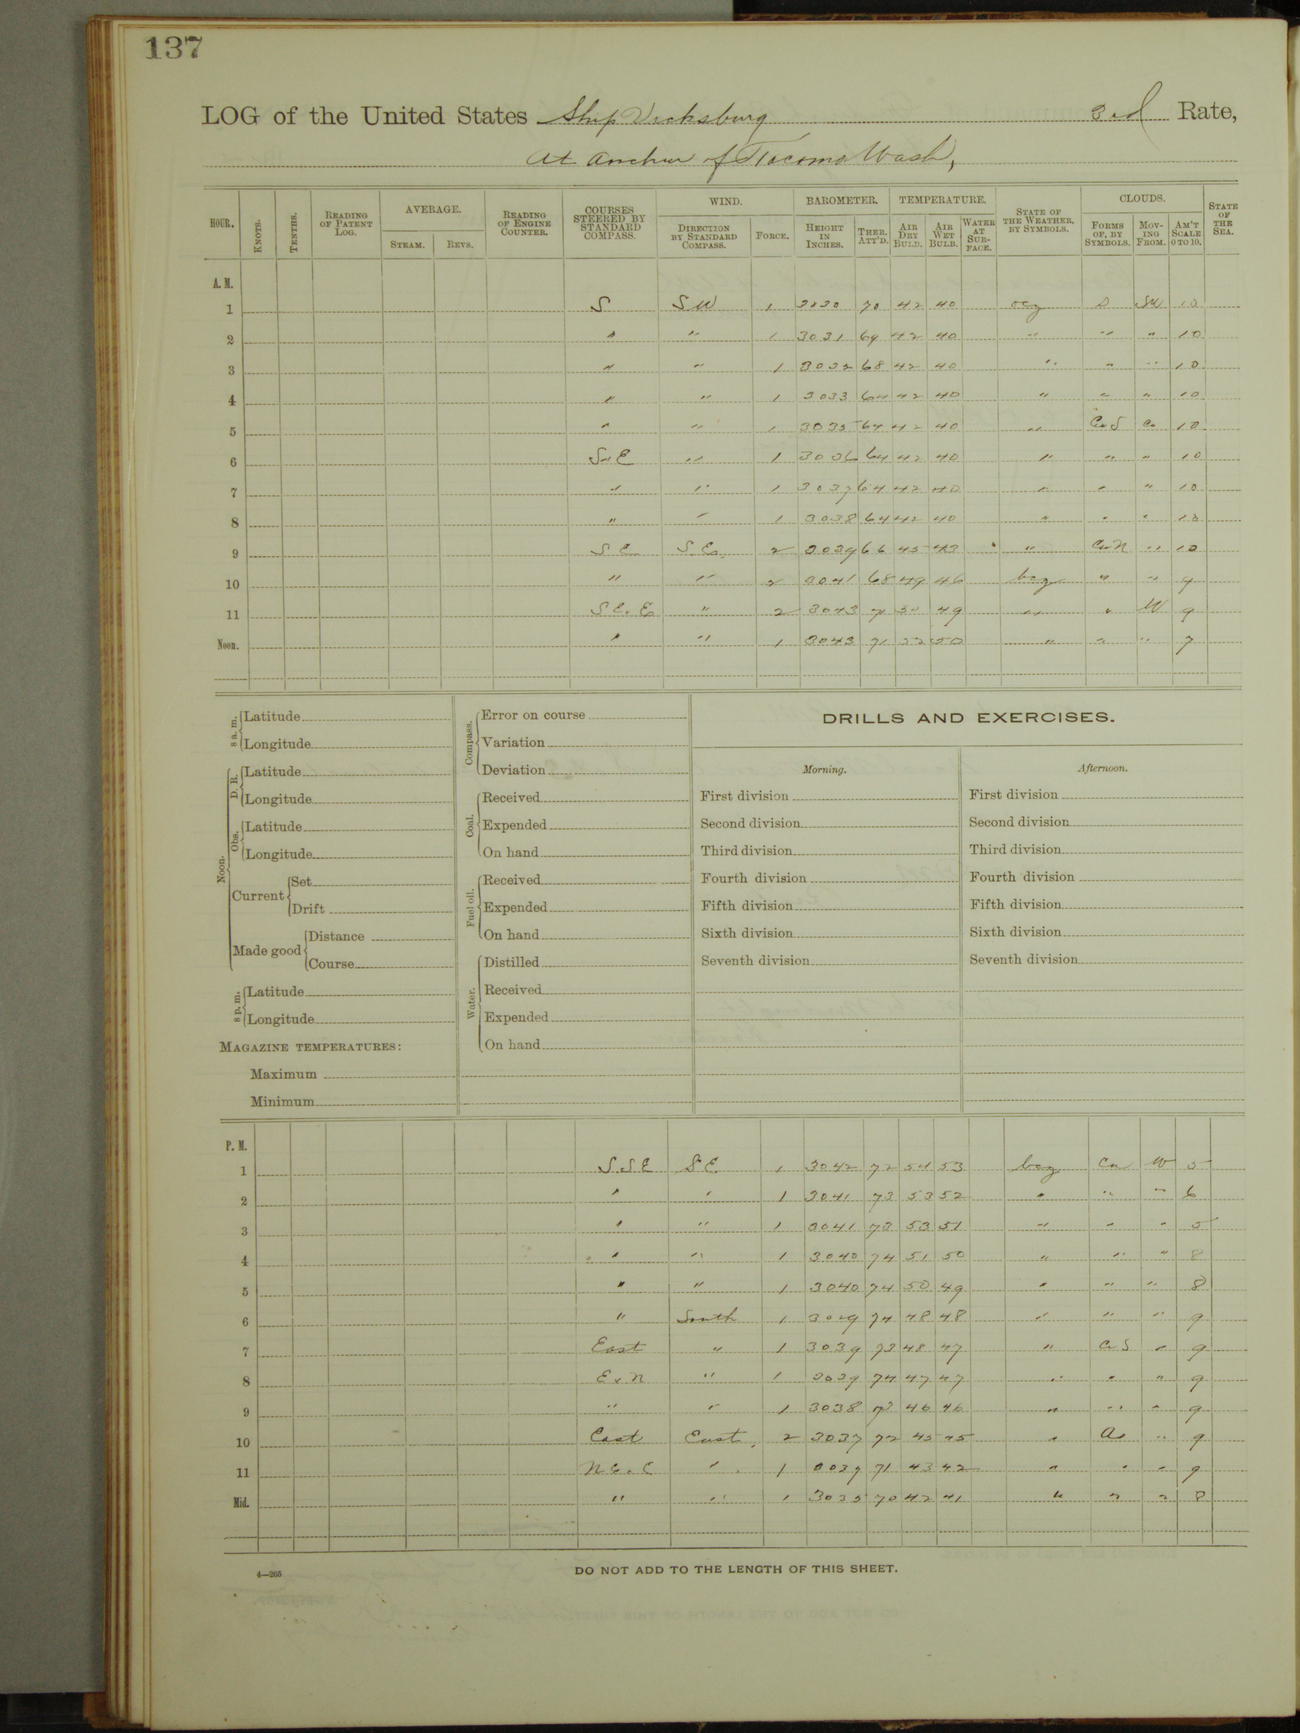 137
LOG of the United States Ship Vicksburg 3rd Rate,
At Anchor off Tacoma Wash,
HOUR. KNOTS. TENTHS. READING OF PATENT LOG. AVERAGE. STEAM. REVS. READING OF ENGINE COUNTER. COURSES STEERED BY STANDARD COMPASS. WIND. DIRECTION BY STANDARD COMPASS. FORCE. BAROMETER. HEIGHT IN INCHES. THER. ATT'D. TEMPERATURE. AIR DRY BULB. AIR WET BULB. WATER AT SURFACE. STATE OF THE WEATHER, BY SYMBOLS. CLOUDS. FORMS OF, BY SYMBOLS. MOVING FROM. AM'T SCALE 0 TO 10. STATE OF THE SEA.
A. M.
1 S SW 1 3030 70 42 40 ocg S SW 10
2 " " 1 3031 69 42 40 " " " 10
3 " " 1 3032 68 42 40 " " " 10
4 " " 1 3033 64 42 40 " " " 10
5 " " 1 3035 64 42 40 " Cu S 10
6 " 1 3036 64 42 40 " " " 10
7 " " 1 3037 64 42 40 " " " 10
8 " " 1 3038 64 42 40 " " " 10
9 S E S E 2 3039 66 45 43 " Cu N " 10
10 " " 2 3041 68 49 46 bcg " " 9
11 " 2 3043 49 " " W 9
Noon. " " 1 3043 71 52 50 " " " 7
8 a. m. Latitude
Longitude
Noon. D. R. Latitude
Longitude
Obs. Latitude
Longitude
Current Set
Drift
Made good Distance
Course
8 p. m. Latitude
Longitude
MAGAZINE TEMPERATURES:
Maximum
Minimum
Compass. Error on course
Variation
Deviation
Coal. Received
Expended
On hand
Fuel oil. Received
Expended
On hand
Water. Distilled
Received
Expended
On hand
DRILLS AND EXERCISES.
Morning.
First division
Second division
Third division
Fourth division
Fifth division
Sixth division
Seventh division
Afternoon.
First division
Second division
Third division
Fourth division
Fifth division
Sixth division
Seventh division
P. M.
1 S.S.E S.E. 1 3042 72 54 53 bcg Cu W 5
2 " " 1 3041 73 53 52 " " " 6
3 " " 1 3041 73 53 51 " " " 5
4 " " 1 3040 74 51 50 " " " 8
5 " " 1 3040 74 50 49 " " " 8
6 " South 1 74 48 48 " " " 9
7 East " 1 3039 73 48 47 " Cu S " 9
8 " 1 3039 74 47 47 " " " 9
9 " " 1 3038 73 46 46 " " " 9
10 East East 2 3037 72 45 45 " " 9
11 " 1 71 43 42 " " " 9
Mid. " " 1 3035 70 42 41 " " " 8
4—265
DO NOT ADD TO THE LENGTH OF THIS SHEET.